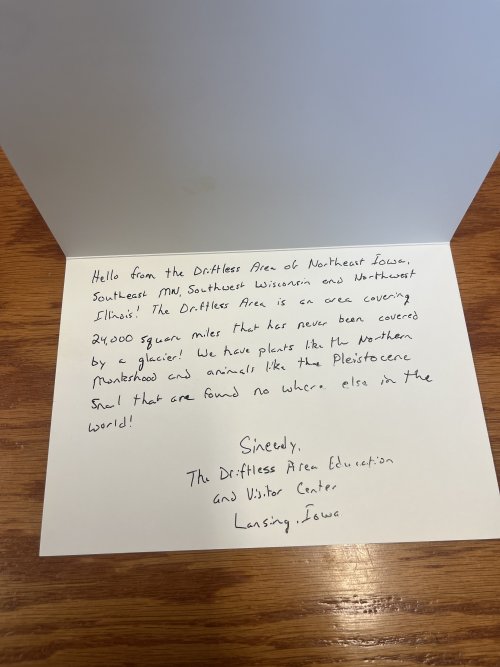 Hello from the Driftless Area of Northeast Iowa,
Southeast MN, Southwest Wisconsin and Northwest
Illinois! The Driftless Area is an area covering
24,000 square miles that has never been covered
by a glacier! We have plants like the Northern
Monkshood and animals like the Pleistocene
Snail that are found no where else in the
world!
Sincerely,
The Driftless Area Education
and Visitor Center
Lansing, Iowa